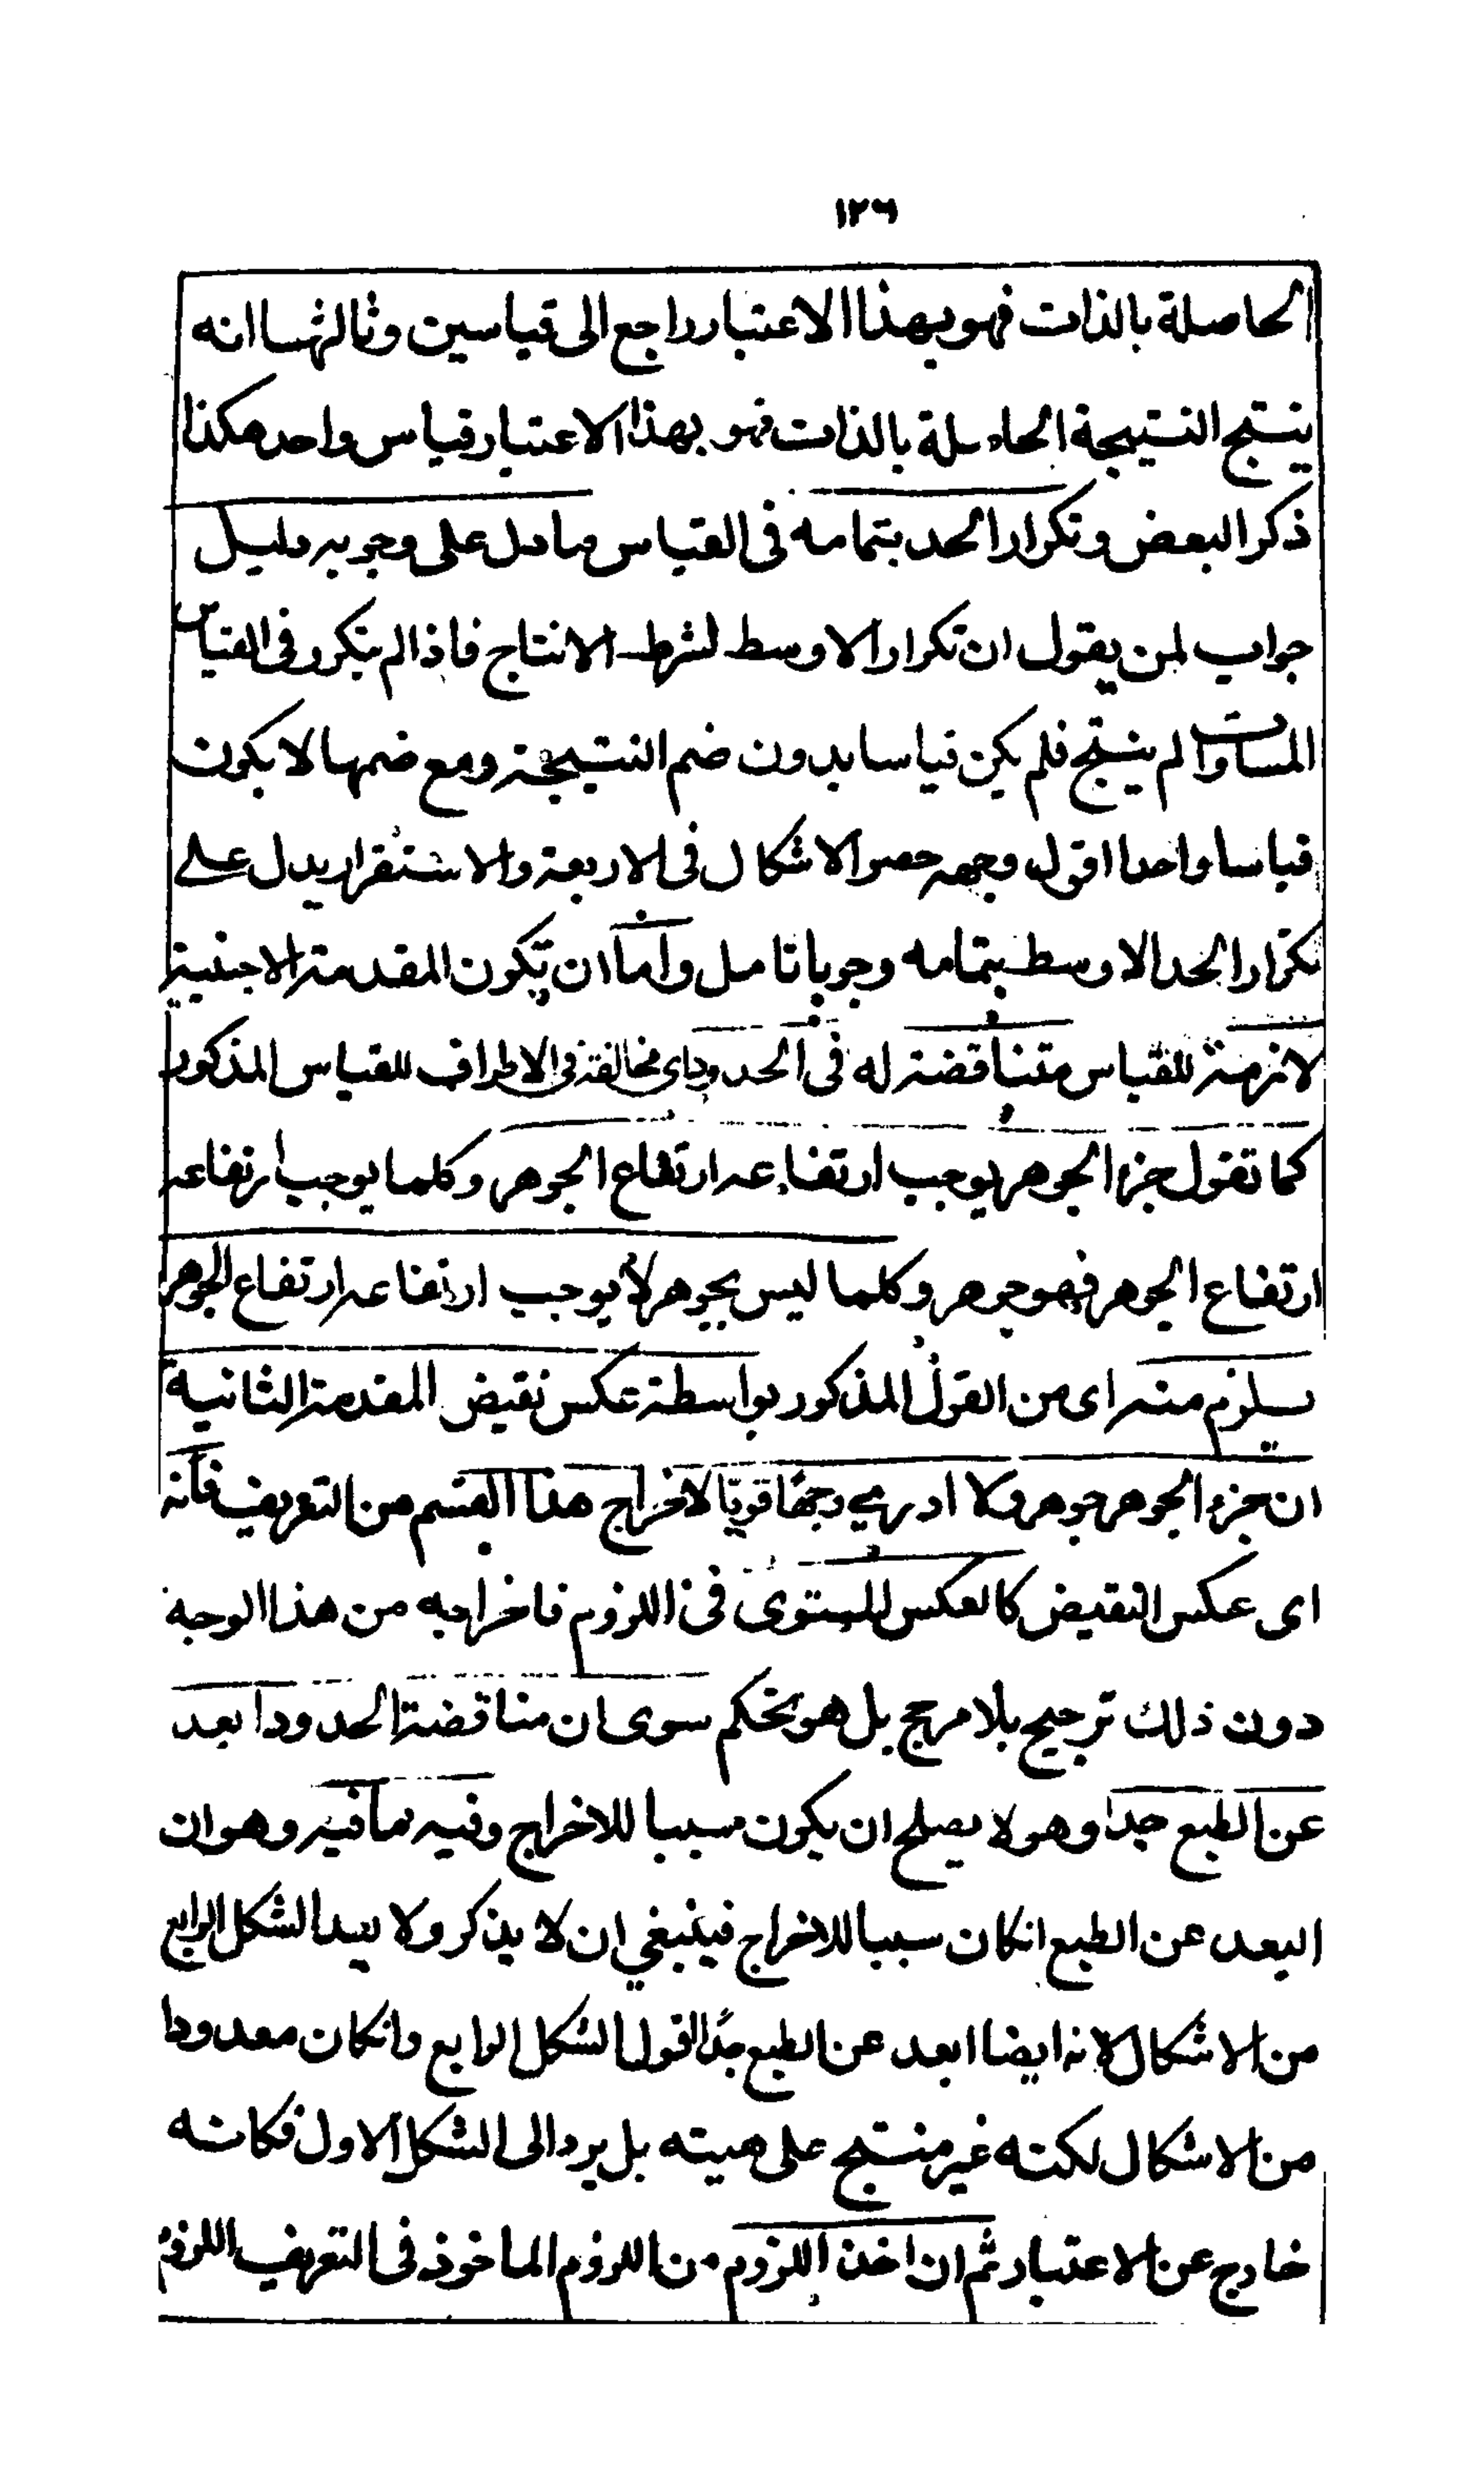 ١٢٦
الحاصلة بالذات فهو بهذا الاعتبار راجع الى قياسين وثالثهما انه
ينتج النتيجة الحاصلة بالذات فهو بهذا الاعتبار قياس واحد هكذا
ذكر البعض وتكرار الحد بتمامه فى القياس ما دل على وجوبه دليل
جواب لمن يقول ان تكرار الاوسط لشرط الانتاج فاذا لم يتكرر فى القياس
المساوات لم ينتج فلم يكن قياسا بدون ضم النتيجة ومع ضمها لا يكون
قياسا واحدا اقول وجه حصر الاشكال فى الاربعة والاستقرار يدل على
تكرار الحد الاوسط بتمامه وجوبا تامل واما ان تكون المقدمة الاجنبية
لازمة للقياس متناقضة له فى الحدود اى مخالفة فى الاطراف للقياس المذكور
كما تقول جزء الجوهر يوجب ارتفاعه ارتفاع الجوهر وكلما يوجب ارتفاعه
ارتفاع الجوهر فهو جوهر وكلما ليس بجوهر لا يوجب ارتفاعه ارتفاع الجوهر
يلزم منه اى من القول المذكور بواسطة عكس نقيض المقدمة الثانية
ان جزء الجوهر جوهر ولا ادرى وجها قويا لاخراج هذا القسم من التعريف فانه
اى عكس النقيض كالعكس المستوى فى اللزوم فاخراجه من هذا الوجه
دون ذلك ترجيح بلا مرجح بل هو تحكم سوى ان مناقضة الحدود ابعد
عن الطبع جدا وهو لا يصلح ان يكون سببا للاخراج وفيه ما فيه وهو ان
البعد عن الطبع انكان سببا للاخراج فينبغي ان لا يذكر ولا يعد الشكل الرابع
من الاشكال لانه ايضا ابعد عن الطبع جدا اقول الشكل الرابع وانكان معدودا
من الاشكال لكنه غير منتج على هيته بل يرد الى الشكل الاول فكانه
خارج عن الاعتبار ثم ان اخذ اللزوم من اللزوم الماخوذ فى التعريف اللزوم